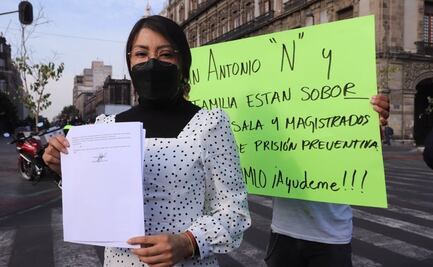 N ANTONIO "N" Y
FAMILIA ESTAN SOBOR
SALA Y MAGISTRADOS
E PRISIÓN PREVENTIVA
MIO ¡AyúDEME!!!